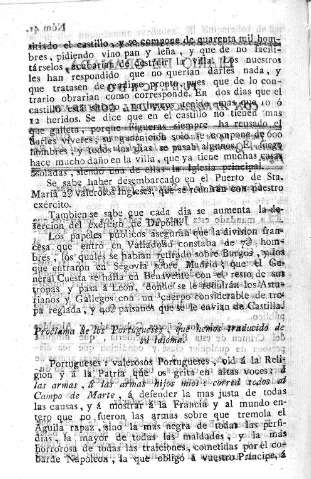 sitiado el castillo, y se compone de quarenta mil hom-
bres, pidiendo vino pan y leña, y que de no facili-
társelos, acabarian de destruir la villa. Los nuestros
les han respondido que no querian darles nada, y
que tratasen de irse pronto, pues que de lo con-
trario obrarian como corresponde. En dos dias que el
castillo
12 heridos. Se dice que en el castillo no tienen mas
que galleta, porque Figueras siempre ha reusado el
darles víveres; su guarnicion solo se compone de 500
hombres, y todos los dias se pasan algunos. El fuego
hace mucho daño en la villa, que ya tiene muchas casas
asoladas, siendo una de ellas la Iglesia principal.
Se sabe haber desembarcado en el Puerto de Sta.
María 2 valerosos Ingleses, que se reunirán con nuestro
exército.
Tambien se sabe que cada dia se aumenta la de-
sercion del exército de Dupont.
Los papeles públicos aseguran que la division fran-
cesa que entró en Valladolid constaba de hom-
bres, los quales se habian retirado sobre Burgos, y
que entraron en Segovia sobre Madrid; que el Ge-
neral Cuesta se halla en Benavente con el resto de sus
tropas y pasa á Leon, donde se le reunirán los Astu-
rianos y Gallegos con un cuerpo considerable de tro-
pa reglada, y paisanos que se le envian de Castilla.
Proclama de los Portugueses, que hemos traducido de
su idioma.
Portugueses: valerosos Portugueses, oid á la Reli-
gion y á la Patria que os grita en altas voces: á
las armas, á las armas hijos mios: corred todos al
Campo de Marte, á defender la mas justa de todas
las causas, y á mostrar á la Francia y al mundo en-
tero que no fueron las armas sobre que tremola el
Aguila rapaz, sino la mas negra de todas las perfi-
dias, la mayor de todas las maldades, y la mas
horrorosa de todas las traiciones, cometidas por el co-
barde Napoleon, la que obligó á vuestro Príncipe, á